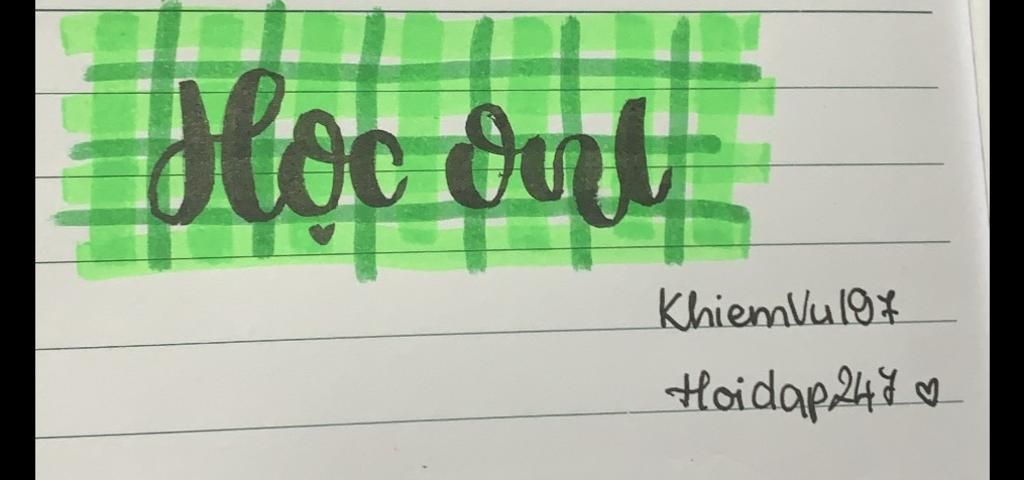 Học onl
KhiemVu197
Hoidap247 ♡